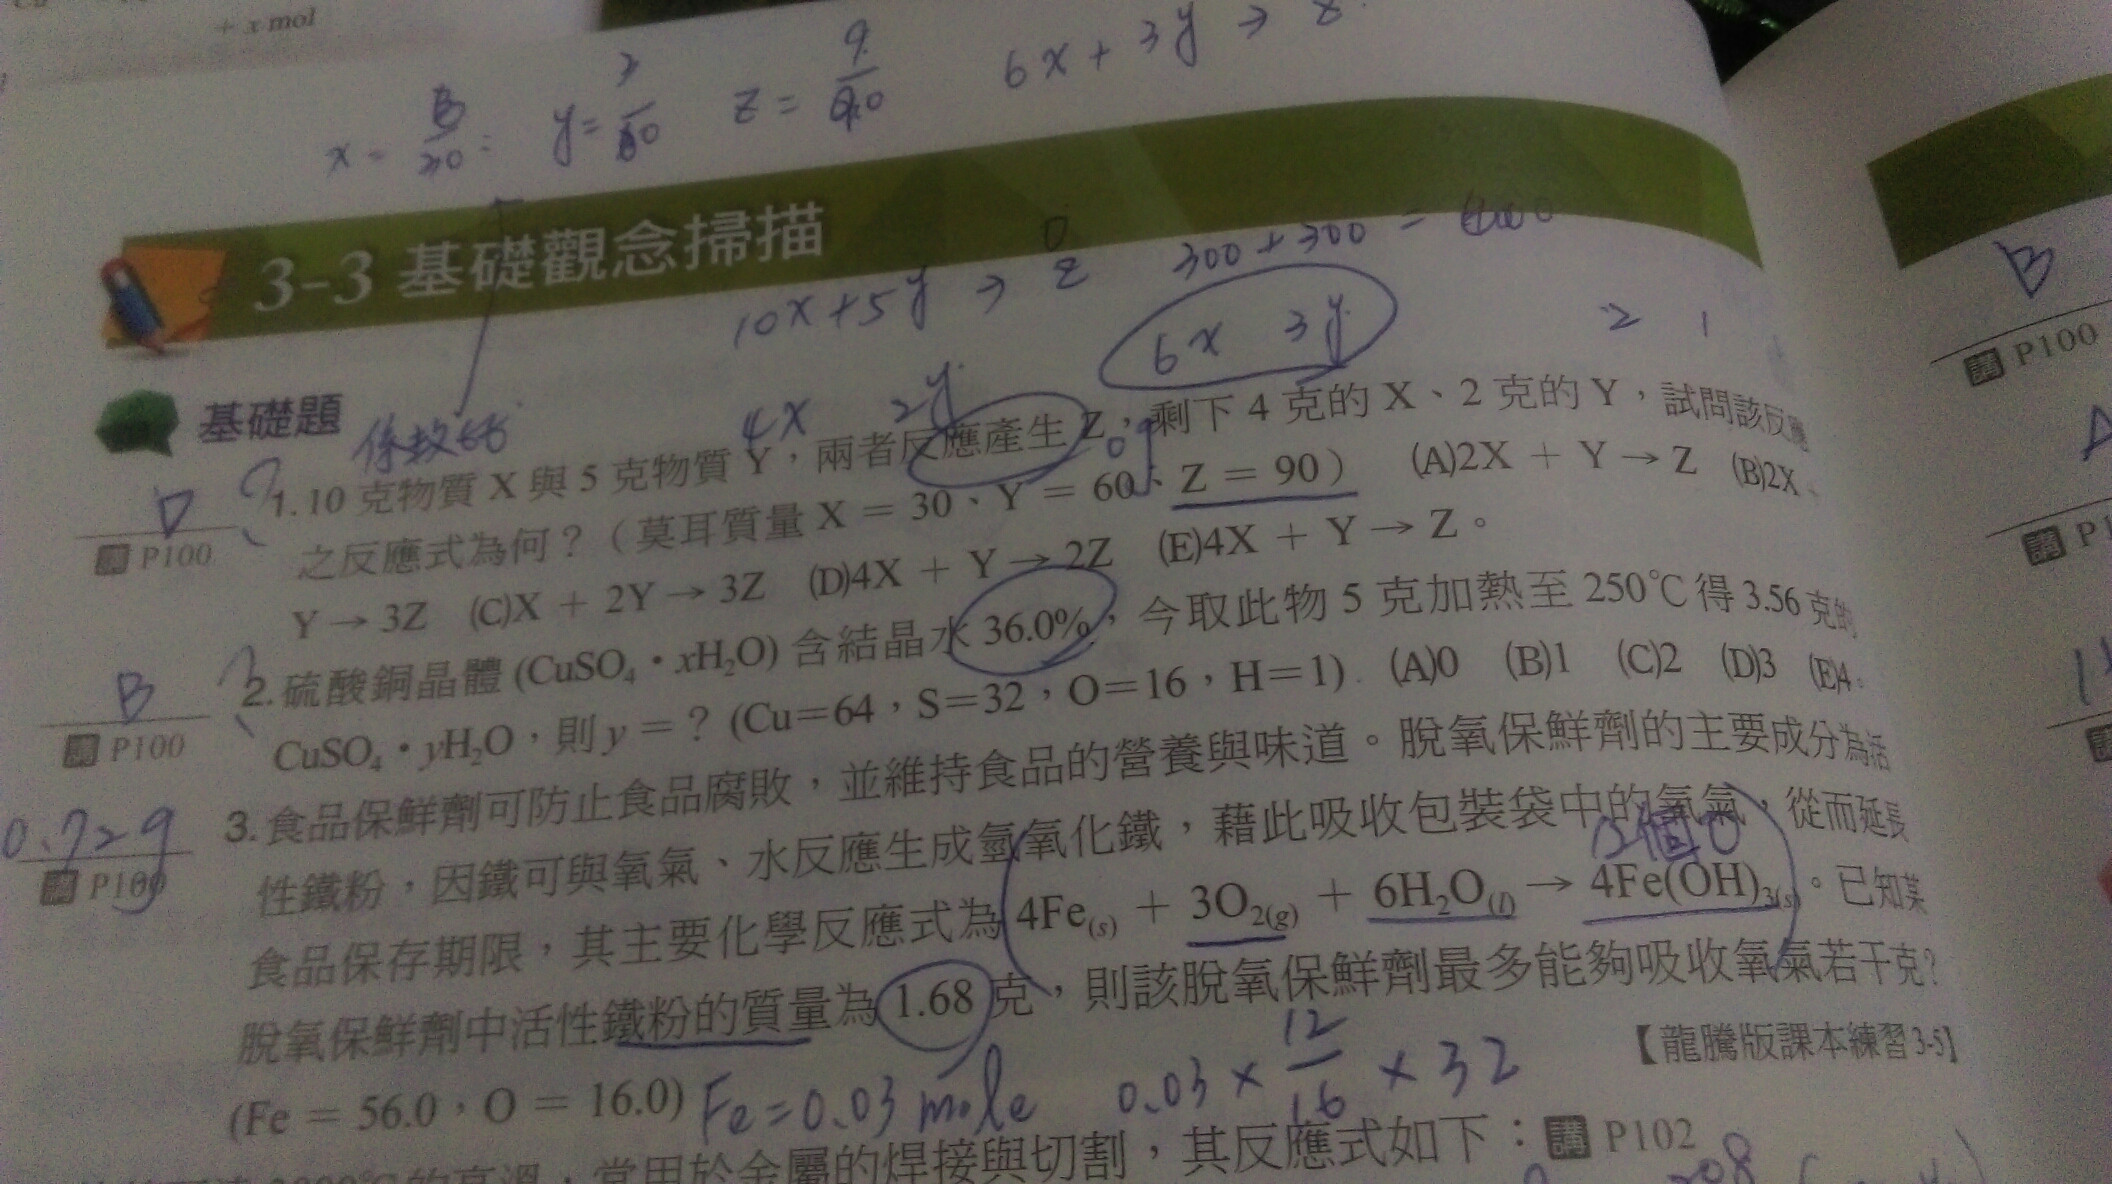 + x mol
x = 30 = y = 60 z = 9 6x + 3y →
3-3 基礎觀念掃描
10x + 5y → z 0 300 + 300 =
6x 3y 2 1
B
講 P100
基礎題
係數比 4x 2y
D
講 P100
1. 10 克物質 X 與 5 克物質 Y，兩者反應產生 Z，剩下 4 克的 X、2 克的 Y，試問該反應
之反應式為何？（莫耳質量 X = 30、Y = 60、Z = 90） (A)2X + Y → Z (B)2X
Y → 3Z (C)X + 2Y → 3Z (D)4X + Y → 2Z (E)4X + Y → Z。
9g
B
講 P100
2. 硫酸銅晶體 (CuSO₄・xH₂O) 含結晶水 36.0%，今取此物 5 克加熱至 250℃ 得 3.56 克的
CuSO₄・yH₂O，則 y = ？ (Cu=64，S=32，O=16，H=1). (A)0 (B)1 (C)2 (D)3 (E)4。
0.72g
講 P100
3. 食品保鮮劑可防止食品腐敗，並維持食品的營養與味道。脫氧保鮮劑的主要成分為活
性鐵粉，因鐵可與氧氣、水反應生成氫氧化鐵，藉此吸收包裝袋中的氧氣，從而延長
12個O
食品保存期限，其主要化學反應式為 4Fe(s) + 3O₂(g) + 6H₂O(l) → 4Fe(OH)₃(s)。已知某
脫氧保鮮劑中活性鐵粉的質量為 1.68 克，則該脫氧保鮮劑最多能夠吸收氧氣若干克？
(Fe = 56.0，O = 16.0)
【龍騰版課本練習 3-5】
Fe = 0.03 mole 0.03 × 12/16 × 32
的高溫，常用於金屬的焊接與切割，其反應式如下：講 P102